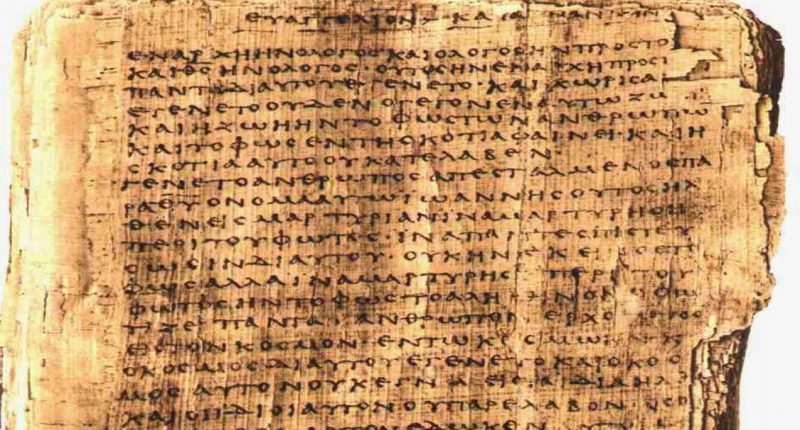 ΕΥΑΓΓΕΛΙΟΝ ΚΑΤΑ ΙΩΑΝΝΗΝ
ΕΝΑΡΧΗΗΝΟΛΟΓΟϹΚΑΙΟΛΟΓΟϹΗΝΠΡΟϹΤΟ
ΚΑΙΘϹΗΝΟΛΟΓΟϹΟΥΤΟϹΗΝΕΝΑΡΧΗΠΡΟϹ
ΠΑΝΤΑΔΙΑΥΤΟΥΕΓΕΝΕΤΟ ΚΑΙΧΩΡΙϹΑ
ΕΓΕΝΕΤΟΟΥΔΕΝΟΓΕΓΟΝΕΝΑΥΤΩΖΩ
ΚΑΙΗΖΩΗΗΝΤΟΦΩϹΤΩΝΑΝΘΡΩΠΩ
ΚΑΙΤΟΦΩϹΕΝΤΗϹΚΟΤΙΑΦΑΙΝΕΙ·ΚΑΙΗ
ϹΚΟΤΙΑΑΥΤΟΟΥΚΑΤΕΛΑΒΕΝ
ΓΕΝΕΤΟΑΝΘΡΩΠΟϹΑΠΕϹΤΑΛΜΕΝΟϹΠΑ
ΡΑΘΥΟΝΟΜΑΑΥΤΩΙΩΑΝΝΗϹΟΥΤΟϹΗΛ
ΘΕΝΕΙϹΜΑΡΤΥΡΙΑΝΙΝΑΜΑΡΤΥΡΗϹΗ
ΠΕΡΙΤΟΥΦΩΤΟϹΙΝΑΠΑΝΤΕϹΠΙϹΤΕΥ
ϹΩϹΙΝΔΙΑΥΤΟΥ·ΟΥΚΗΝΕΚΕΙΝΟϹΤΟ
ΦΩϹΑΛΛΑΙΝΑΜΑΡΤΥΡΗϹΗΠΕΡΙΤΟΥ
ΦΩΤΟϹΗΝΤΟΦΩϹΤΟΑΛΗΘΙΝΟΝΟΦΩ
ΤΙΖΕΙΠΑΝΤΑΑΝΘΡΩΠΟΝΕΡΧΟΜΕΝΟΝ
ΕΙϹΤΟΝΚΟϹΜΟΝ·ΕΝΤΩΚΟϹΜΩΗΝ
ΟΚΟϹΜΟϹΔΙΑΥΤΟΥΕΓΕΝΕΤΟΚΑΙΟΚΟϹ
ΜΟϹΑΥΤΟΝΟΥΚΕΓΝΩΕΙϹΤΑΙΔΙΑΗΛ
ΚΑΙΟΙΙΔΙΟΙΑΥΤΟΝΟΥΠΑΡΕΛΑΒΟΝ·ΟϹΟ